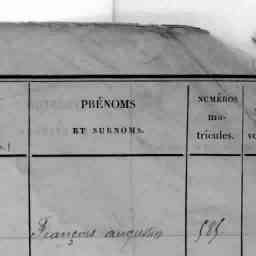 PRÉNOMS
ET SURNOMS.
NUMÉROS
ma-
tricules.
François augustin
585